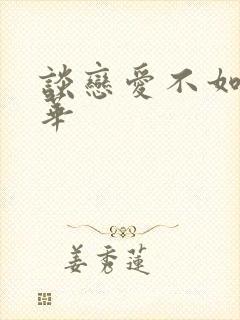 談戀愛不如
華
姜秀蓮